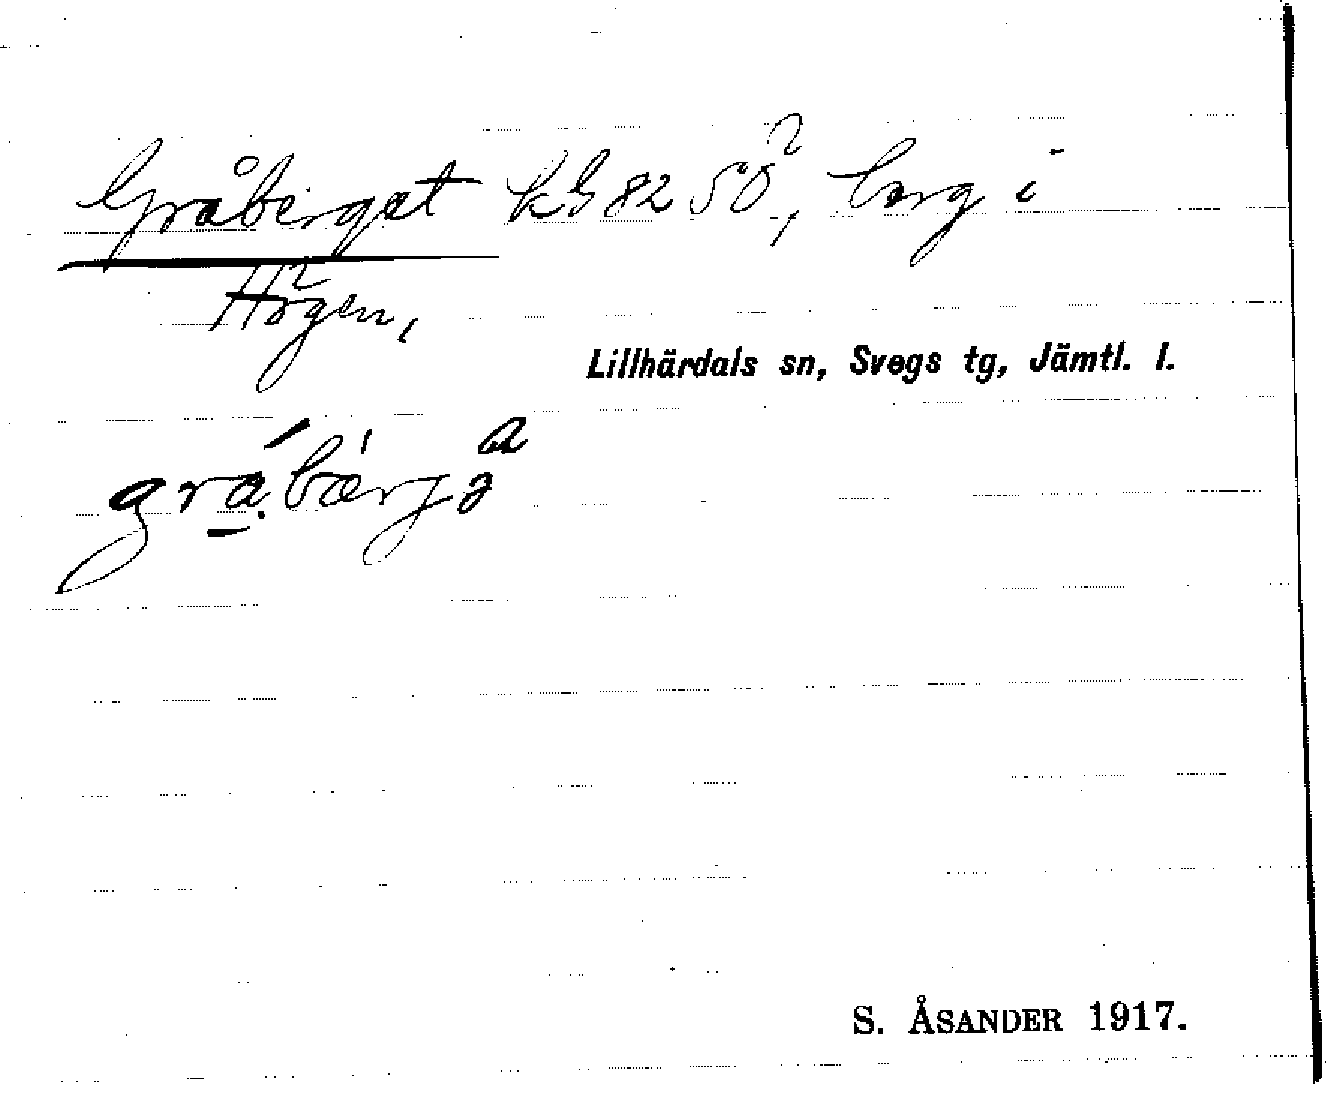 Gråberget KG 82 SÖ, berg i
Högen,
Lillhärdals sn, Svegs tg, Jämtl. l.
S. ÅSANDER 1917.